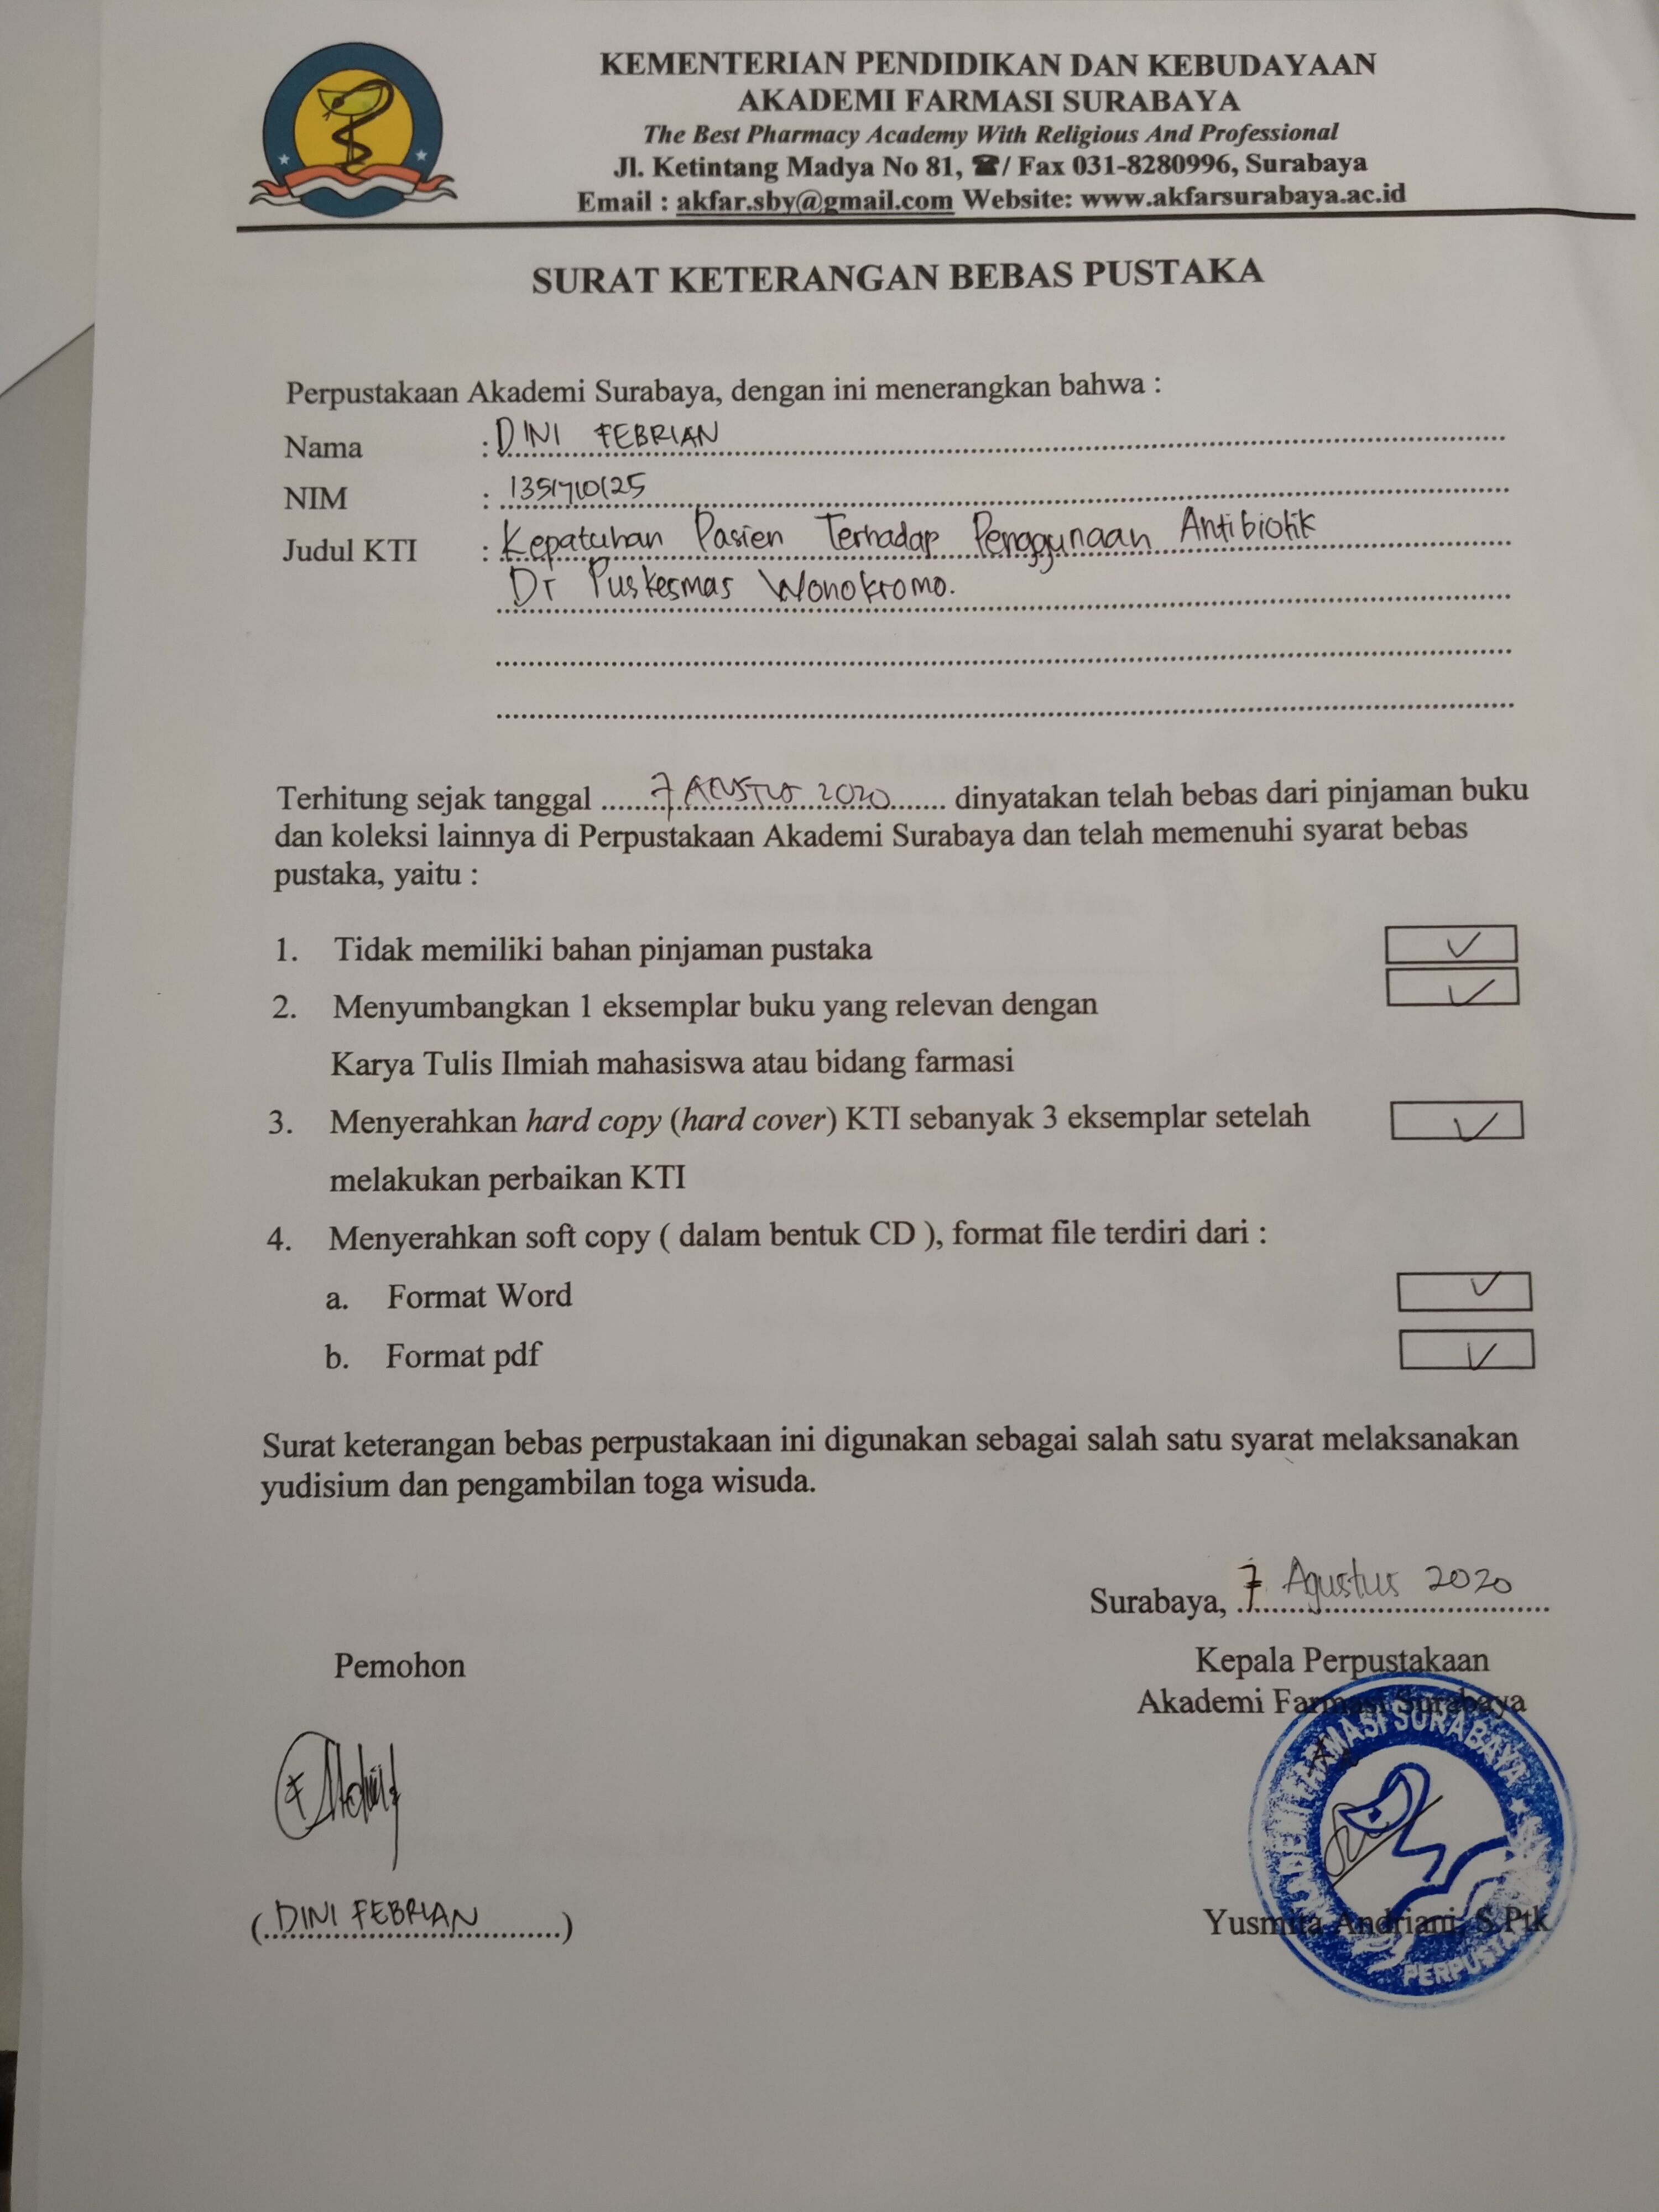 KEMENTERIAN PENDIDIKAN DAN KEBUDAYAAN
AKADEMI FARMASI SURABAYA
The Best Pharmacy Academy With Religious And Professional
Jl. Ketintang Madya No 81, ☎/ Fax 031-8280996, Surabaya
Email : akfar.sby@gmail.com Website: www.akfarsurabaya.ac.id
SURAT KETERANGAN BEBAS PUSTAKA
Perpustakaan Akademi Surabaya, dengan ini menerangkan bahwa :
Nama : DINI FEBRIAN
NIM : 1351710125
Judul KTI : Kepatuhan Pasien Terhadap Penggunaan Antibiotik
Di Puskesmas Wonokromo.
Terhitung sejak tanggal 7 AGUSTUS 2020 dinyatakan telah bebas dari pinjaman buku
dan koleksi lainnya di Perpustakaan Akademi Surabaya dan telah memenuhi syarat bebas
pustaka, yaitu :
1. Tidak memiliki bahan pinjaman pustaka ✓
2. Menyumbangkan 1 eksemplar buku yang relevan dengan ✓
Karya Tulis Ilmiah mahasiswa atau bidang farmasi
3. Menyerahkan hard copy (hard cover) KTI sebanyak 3 eksemplar setelah ✓
melakukan perbaikan KTI
4. Menyerahkan soft copy ( dalam bentuk CD ), format file terdiri dari :
a. Format Word ✓
b. Format pdf ✓
Surat keterangan bebas perpustakaan ini digunakan sebagai salah satu syarat melaksanakan
yudisium dan pengambilan toga wisuda.
Surabaya, 7 Agustus 2020
Pemohon
Kepala Perpustakaan
Akademi Farmasi Surabaya
AKADEMI FARMASI SURABAYA
(DINI FEBRIAN)
Yusmita Andriani, S.Ptk